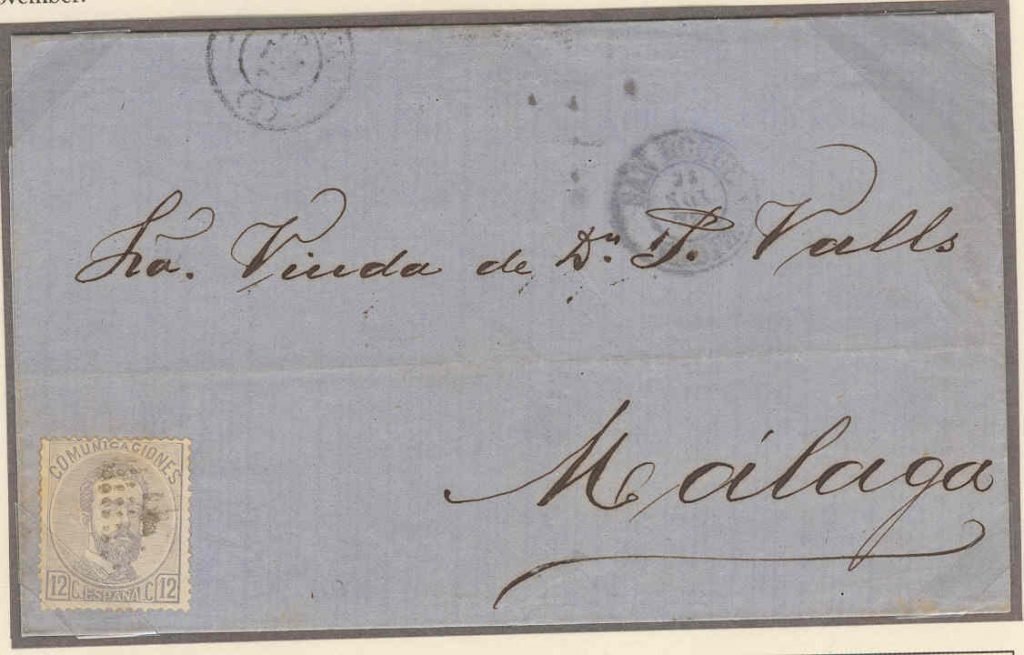 ovember.
Sra. Viuda de Dn. P. Valls
Málaga
COMUNICACIONES
12 C. ESPAÑA. C 12